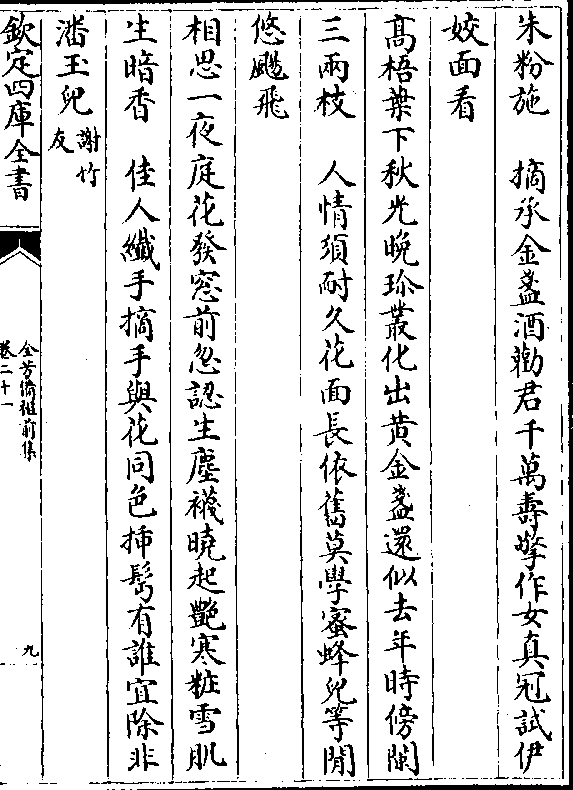 朱粉施　摘承金盞酒勸君千萬壽擎作女真冠試伊
姣面看
髙梧葉下秋光晚珍叢化出黄金盞還似去年時傍闌
三兩枝　人情須耐久花面長依舊莫學蜜蜂兒等閒
悠颺飛
相思一夜庭花發窓前忽認生塵襪曉起艶寒粧雪肌
生暗香　佳人纖手摘手與花同色揷鬂有誰宜除非
潘玉兒謝竹友
欽定四庫全書
全芳備祖前集
卷二十一
九